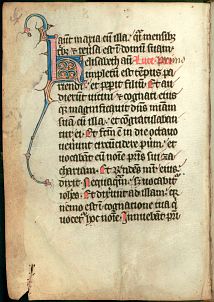 aut maria cu illa. qi mensibz
tbz & reusa est i domu suam.
Elisabeth au Luce primo
impletu est tepus pa
riendi. et pepit filiu. Et au
dierut uicini & cognati eius
quia magnificauit dns miam
suam cu illa. et cogratulaban
tur ei. Et fcm e in die octauo
uenerut circucidere puerum. et
uocabat eu noie pris sui za
chariam. Et rndes mr eius
dixit Nequaqm. s; uocabitur
iohes. Et dixerut ad illam. qa
nemo est i cognatione tua q
uocet hoc noie. Innuebat pri